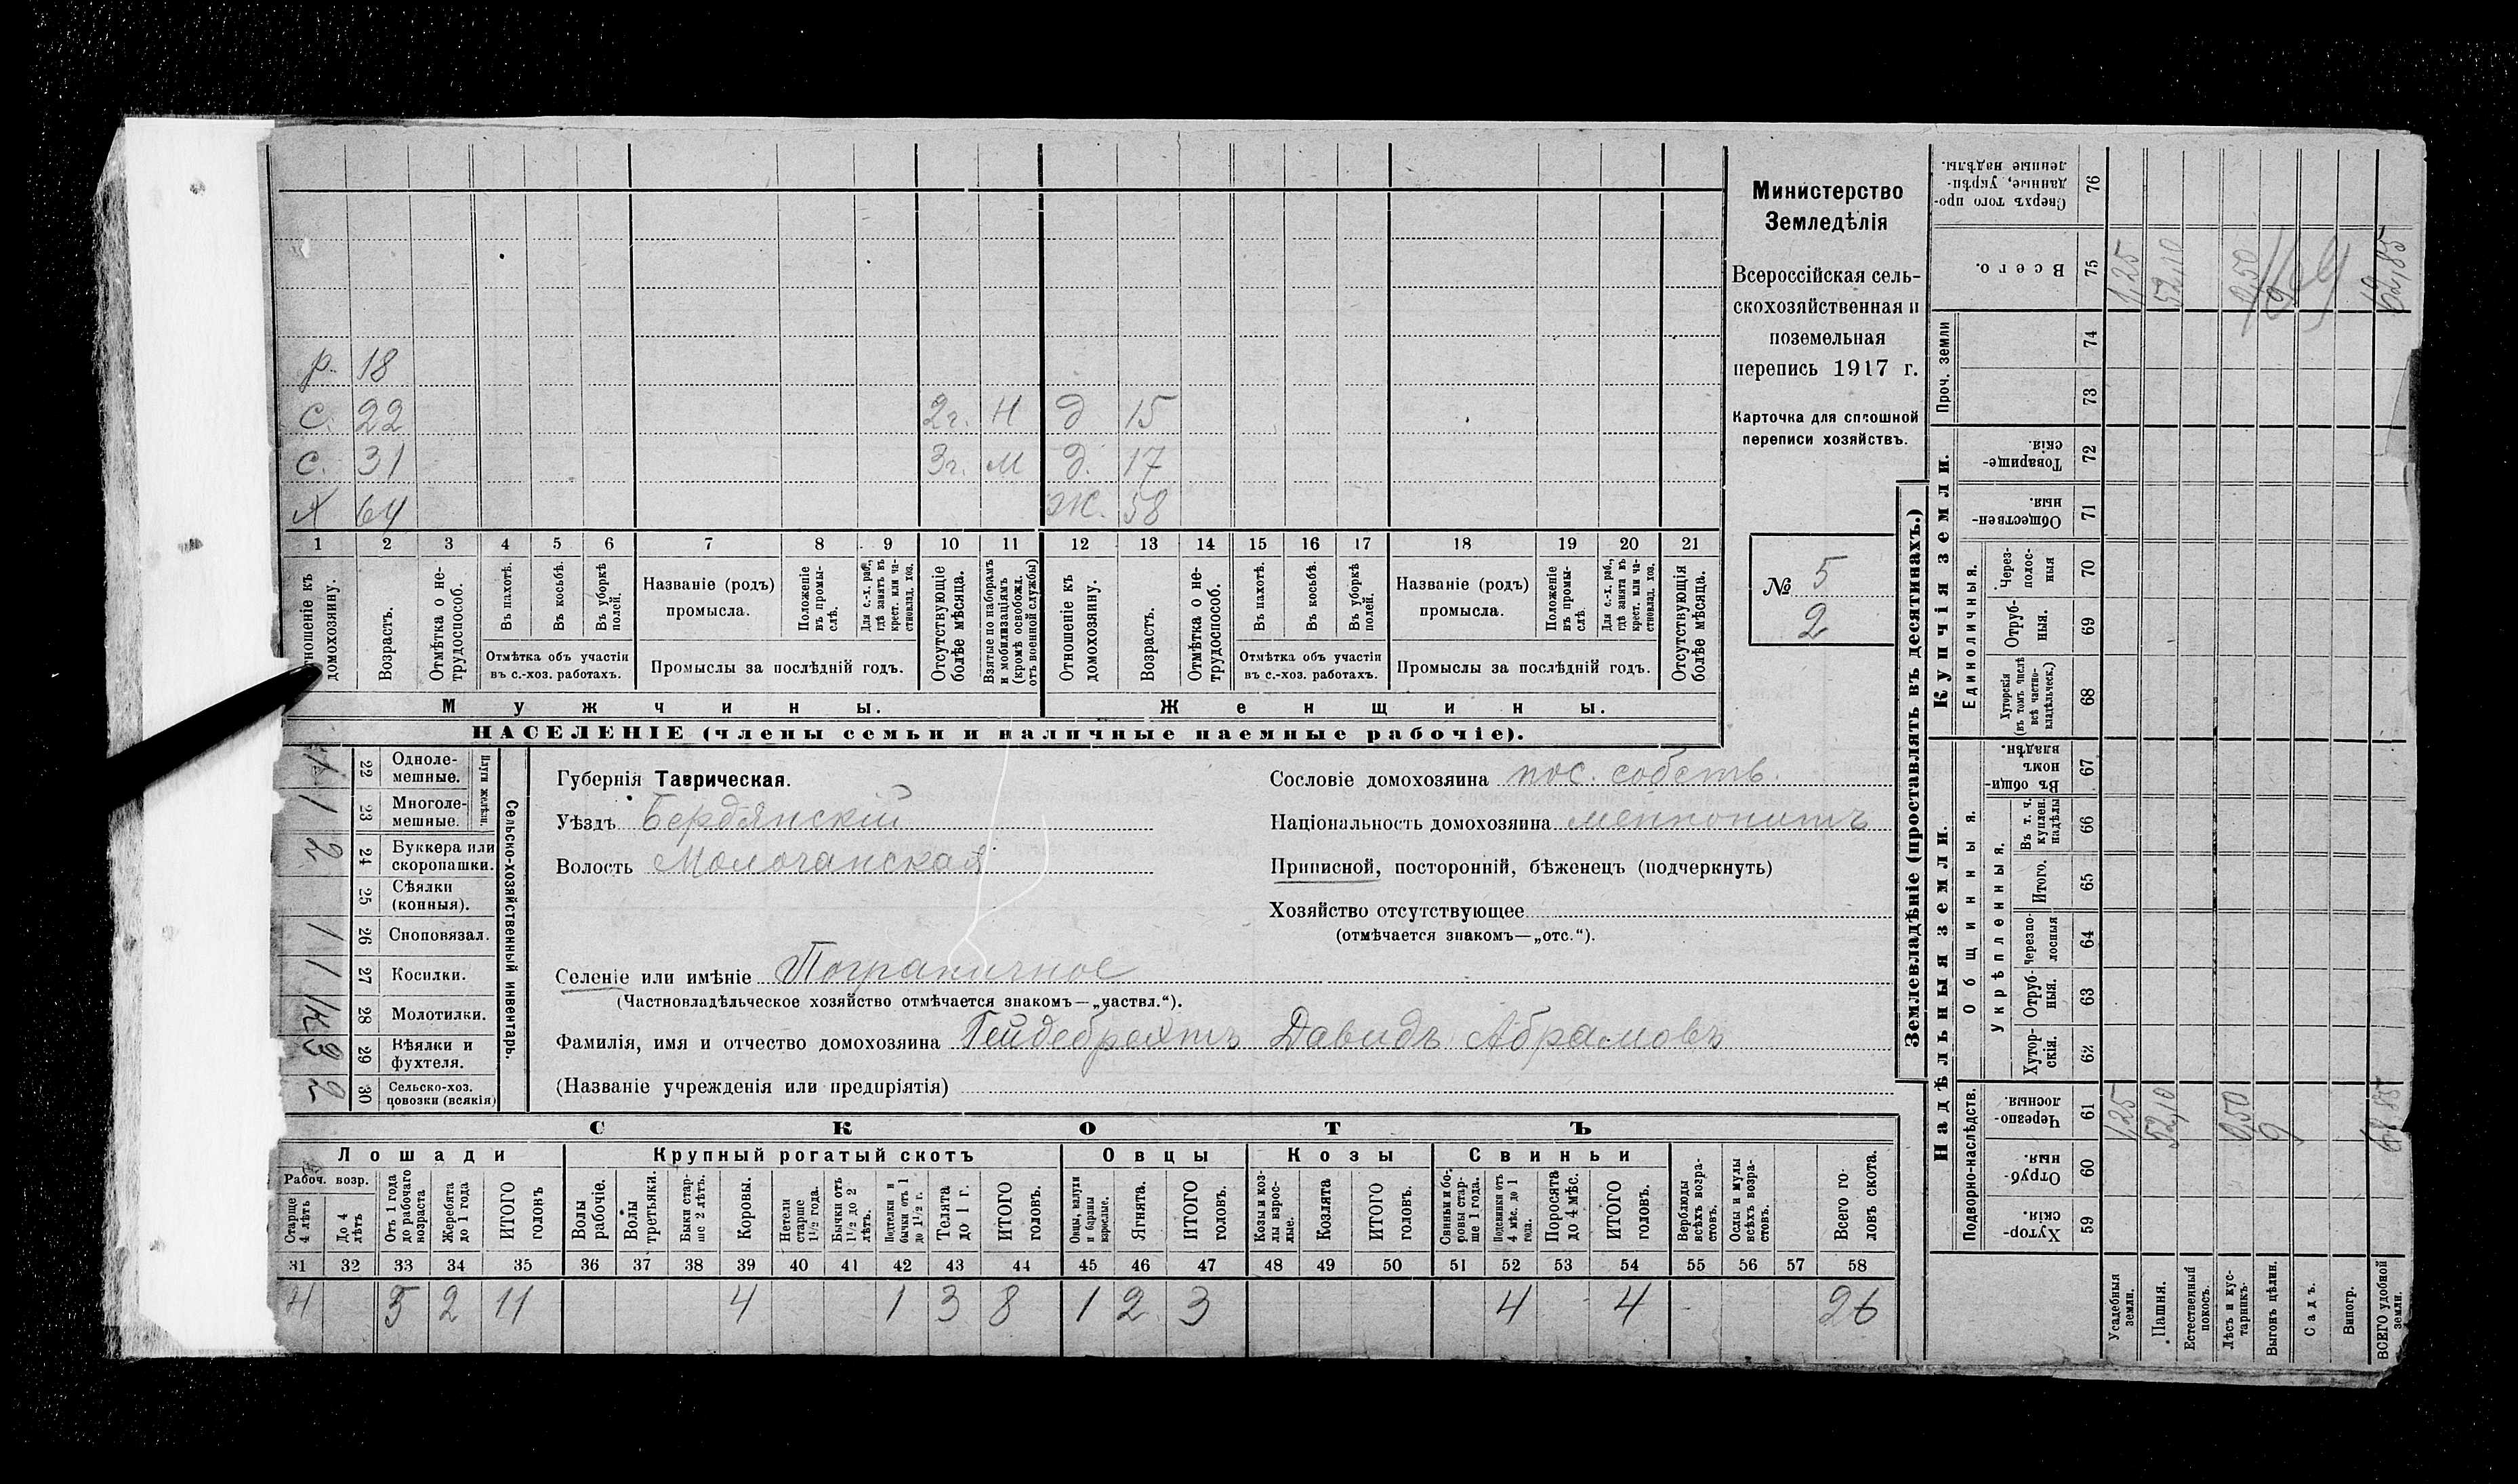 р. 18
С. 22 2г. Н д 15
С. 31 3г. М д. 17
Х 64 Ж. 58
1 2 3 4 5 6 7 8 9 10 11 12 13 14 15 16 17 18 19 20 21
домохозяину.
Возрастъ.
Отмѣтка о не-
трудоспособ.
Въ пахотѣ.
Въ косьбѣ.
Въ уборкѣ
полей.
Отмѣтка объ участіи
въ с.-хоз. работахъ.
Названіе (родъ)
промысла.
Положеніе
въ промы-
слѣ.
Для с.-х. раб.,
гдѣ занятъ въ
крест. или ча-
стновлад. хоз.
Промыслы за послѣдній годъ.
Отсутствующіе
болѣе мѣсяца.
Взятые по наборамъ
и мобилизаціямъ
(кромѣ освобожд.
отъ военной службы)
Отношеніе къ
домохозяину.
Возрастъ.
Отмѣтка о не-
трудоспособ.
Въ пахотѣ.
Въ косьбѣ.
Въ уборкѣ
полей.
Отмѣтка объ участіи
въ с.-хоз. работахъ.
Названіе (родъ)
промысла.
Положеніе
въ промы-
слѣ.
Для с.-х. раб.,
гдѣ занята въ
крест. или ча-
стновлад. хоз.
Промыслы за послѣдній годъ.
Отсутствующія
болѣе мѣсяца.
Мужчины.
Женщины.
НАСЕЛЕНІЕ (члены семьи и наличные наемные рабочіе).
Министерство
Земледѣлія
Всероссійская сель-
скохозяйственная и
поземельная
перепись 1917 г.
Карточка для сплошной
переписи хозяйствъ.
№ 5
2
Сельско-хозяйственный инвентарь.
Плуги желѣзн.
22 Одноле-
мешные.
1 23 Многоле-
мешные.
2 24 Буккера или
скоропашки.
25 Сѣялки
(конныя).
1 26 Сноповязал.
1 27 Косилки.
28 Молотилки.
29 Вѣялки и
фухтеля.
2 30 Сельско-хоз.
повозки (всякія)
Губернія Таврическая.
Уѣздъ Бердянскій
Волость Молочанская
Сословіе домохозяина пос. собств.
Національность домохозяина меннонитъ
Приписной, посторонній, бѣженецъ (подчеркнуть)
Хозяйство отсутствующее
(отмѣчается знакомъ—„отс.“).
Селеніе или имѣніе Пограничное
(Частновладѣльческое хозяйство отмѣчается знакомъ—„частвл.“).
Фамилія, имя и отчество домохозяина Гейдебрехтъ Давидъ Абрамовъ
(Названіе учрежденія или предпріятія)
СКОТЪ
Лошади Крупный рогатый скотъ Овцы Козы Свиньи
Рабоч. возр.
Старше
4 лѣтъ
До 4
лѣтъ
Отъ 1 года
до рабочаго
возраста
Жеребята
до 1 года
ИТОГО
головъ
Волы
рабочіе.
Волы
третьяки.
Быки стар-
ше 2 лѣтъ.
Коровы.
Нетели
старше
1½ года.
Бычки отъ
1½ до 2
лѣтъ.
Подтелки и
бычки отъ 1
до 1½ г.
Телята
до 1 г.
ИТОГО
головъ.
Овцы, валухи
и бараны
взрослые.
Ягнята.
ИТОГО
головъ.
Козы и коз-
лы взрос-
лые.
Козлята
ИТОГО
головъ.
Свиньи и бо-
ровы стар-
ше 1 года.
Подсвинки отъ
4 мѣс. до 1
года.
Поросята
до 4 мѣс.
ИТОГО
головъ.
Верблюды
всѣхъ возра-
стовъ.
Ослы и мулы
всѣхъ возра-
стовъ.
Всего го-
ловъ скота.
31 32 33 34 35 36 37 38 39 40 41 42 43 44 45 46 47 48 49 50 51 52 53 54 55 56 57 58
4 5 2 11 4 1 3 8 1 2 3 4 4 26
Землевладѣніе (проставлять въ десятинахъ.)
Купчія земли.
Надѣльныя земли.
Сверхъ того про-
данные, укрѣп-
ленные надѣлы.
76
Всего.
75 1,25 52,10 62,85
Проч. земли
74
73
Товарище-
скія.
72
Обществен-
ныя.
71
Единоличныя.
Через-
полос-
ныя
70
Отруб-
ныя.
69
Хуторскія
(въ томъ числѣ
всѣ частно-
владѣльческ.)
68
Общинныя.
Въ общи
номъ
владѣн.
67
Укрѣпленныя.
Въ т. ч.
куплен.
надѣлы
66
Итого.
65
Черезпо-
лосныя
64
Отруб-
ныя.
63
Хутор-
скія.
62
Подворно-наслѣдств.
Черезпо-
лосныя.
61 1,25 52,10 0,50 9
Отруб-
ныя.
60
Хутор-
скія.
59
Усадебныя
земли.
Пашня.
Естественный
покосъ.
Лѣсъ и кус-
тарникъ.
Выгонъ цѣлин.
Садъ.
Виногр.
ВСЕГО удобной
земли.